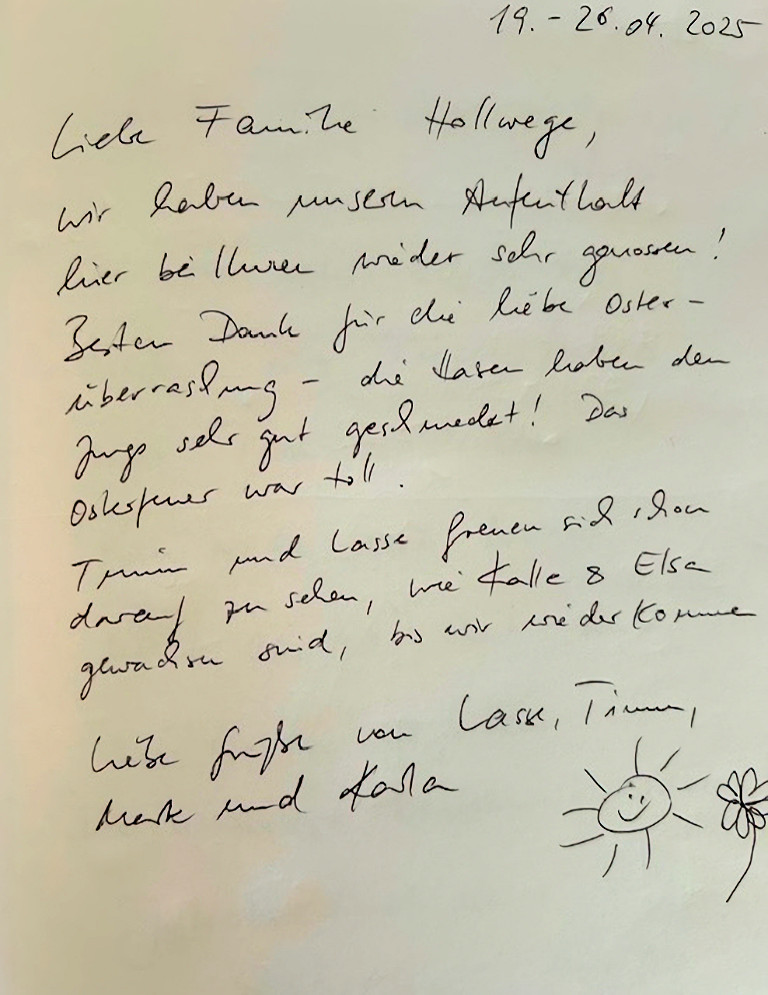 19. - 26.04. 2025
Liebe Familie Hollwege,
wir haben unseren Aufenthalt
hier bei Ihnen wieder sehr genossen!
Besten Dank für die liebe Oster-
überraschung - die Hasen haben den
Jungs sehr gut geschmeckt! Das
Osterfeuer war toll.
Timm und Lasse freuen sich schon
darauf zu sehen, wie Kalle & Elsa
gewachsen sind, bis wir wieder kommen
Liebe Grüße von Lasse, Timm,
und Karla